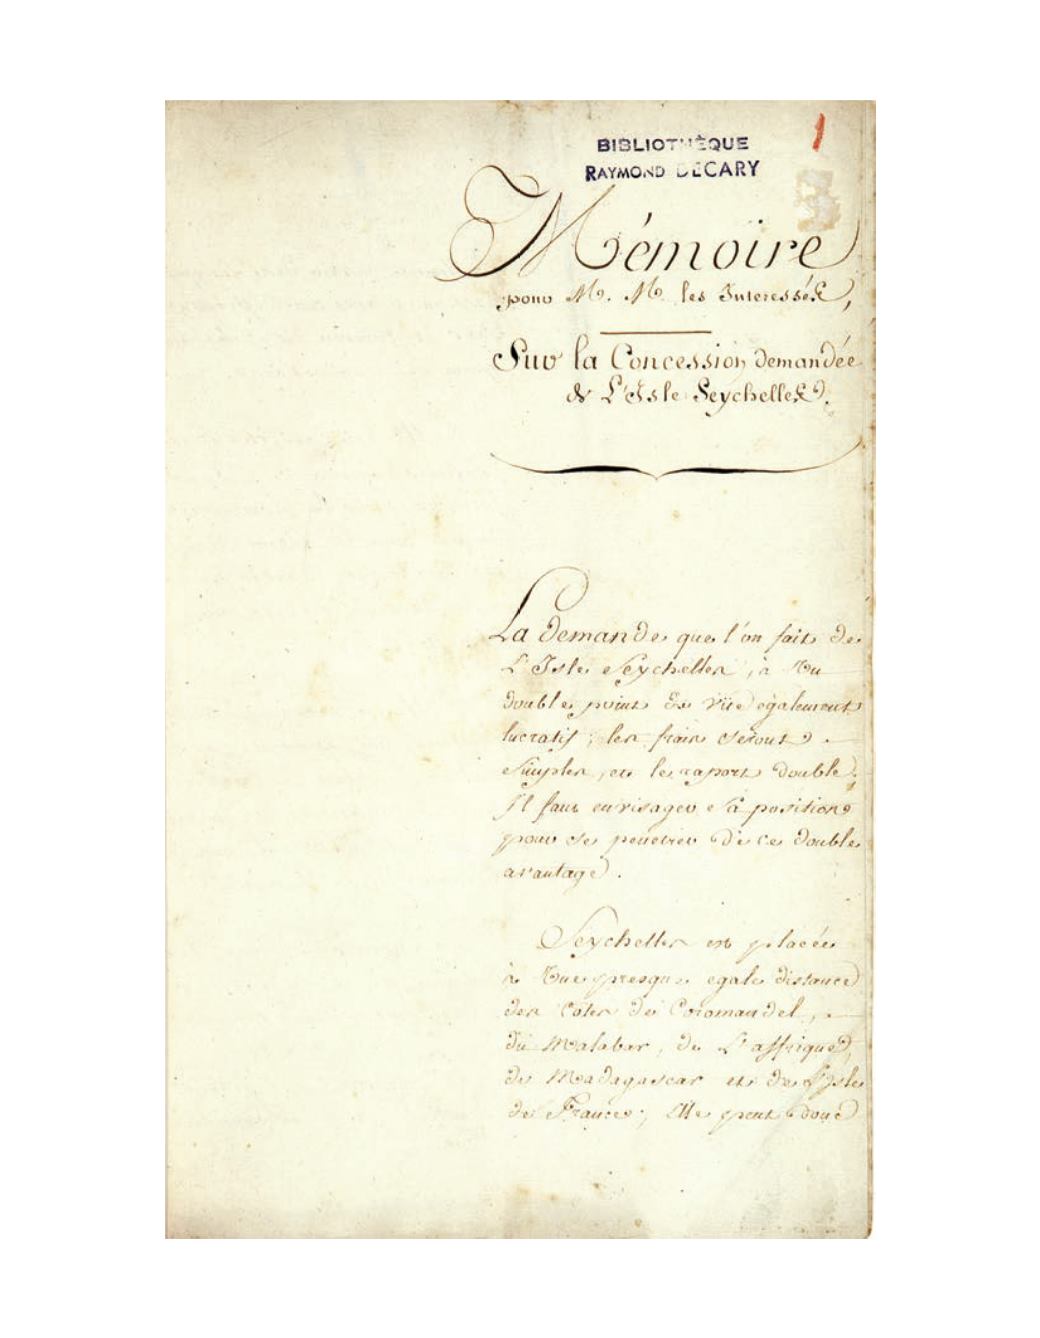 1
BIBLIOTHÈQUE
RAYMOND DECARY
Mémoire
pour M. M. les Interessés,
Sur la Concession demandée
de L'Isle Seychelles.
La demande que l'on fait de
L'Isle Seychelles, à Un
double point de vüe également
lucratif; les frais seront
simples, et le raport double.
Il faut envisager sa position
pour se penetrer de ce double
avantage.
Seychelles est placée
à Une presque egale distance
des Cotes de Coromandel,
du Malabar, de L'affrique,
de Madagascar et de l'Isle
de France; Elle peut donc